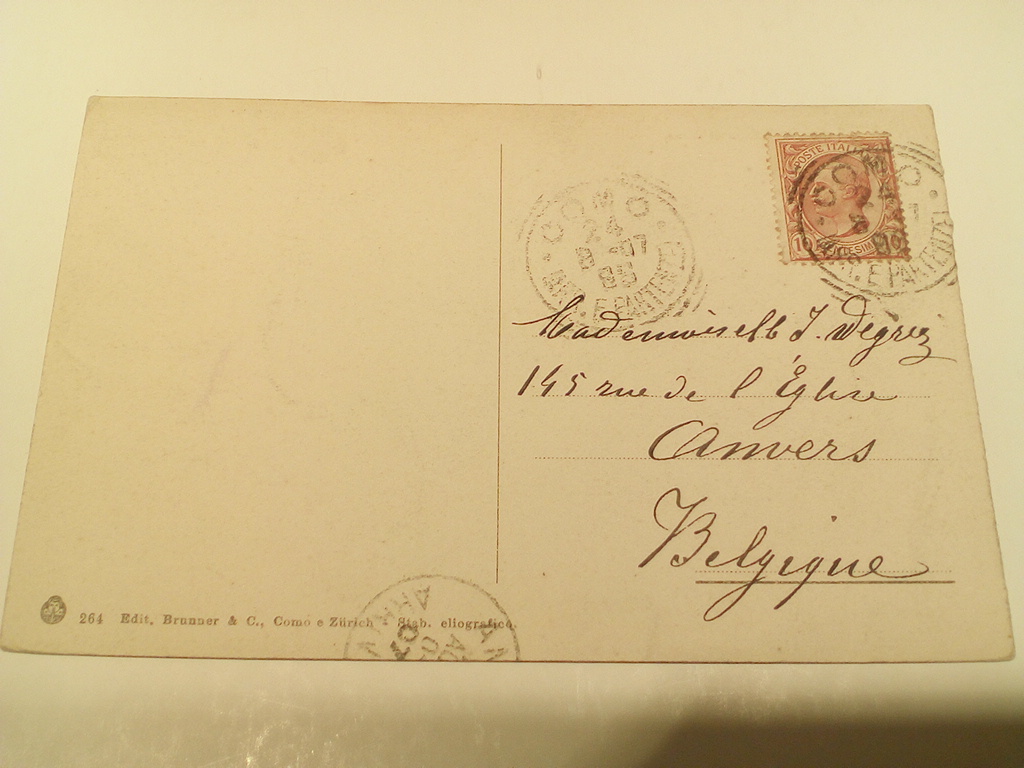 POSTE ITALIANE
10 CENTESIMI 10
COMO
24
8 - 07
ARRIVI E PARTENZE
COMO
E PARTENZE
Mademoiselle J. Degrez
145 rue de l'Église
Anvers
Belgique
264 Edit. Brunner & C., Como e Zürich Stab. eliografico.
07